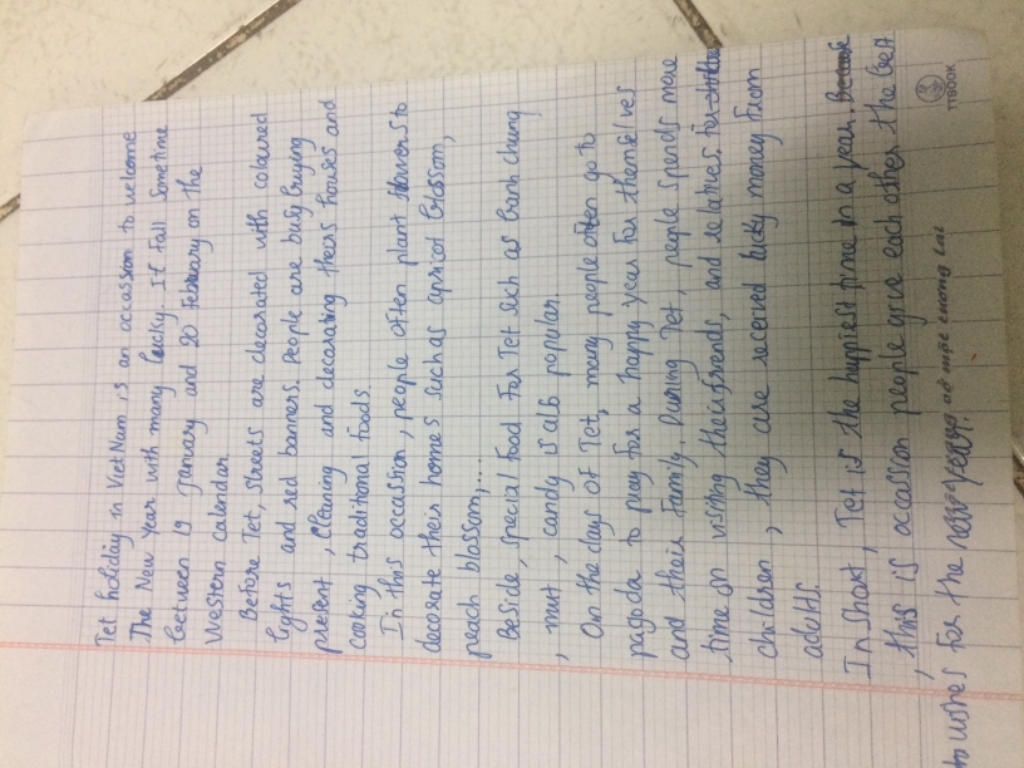 Tet holiday in Viet Nam is an occassion to welcome
The New year with many lucky. It fall sometime
between 19 January and 20 February on the
Western calender.
Before Tet, streets are decarated with coloured
lights and red banners. People are busy buying
present, cleaning and decorating theirs houses and
cooking traditional foods.
In this occasstion, people often plant flowers to
decorate their homes such as apricot blossom,
peach blossom,...
Beside, special food for Tet such as banh chung
, mut, candy is alb popular.
On the days of Tet, many people often go to
pagoda to pray for a happy year for themselves
and their family. Duning Tet, people spends more
time on visiting their friends, and relatives. For
children, they are received lucky money from
adults.
In short, Tet is the happiest time in a year.
, this is occassion people give each other the best
wishes for the new year.
TTBOOK